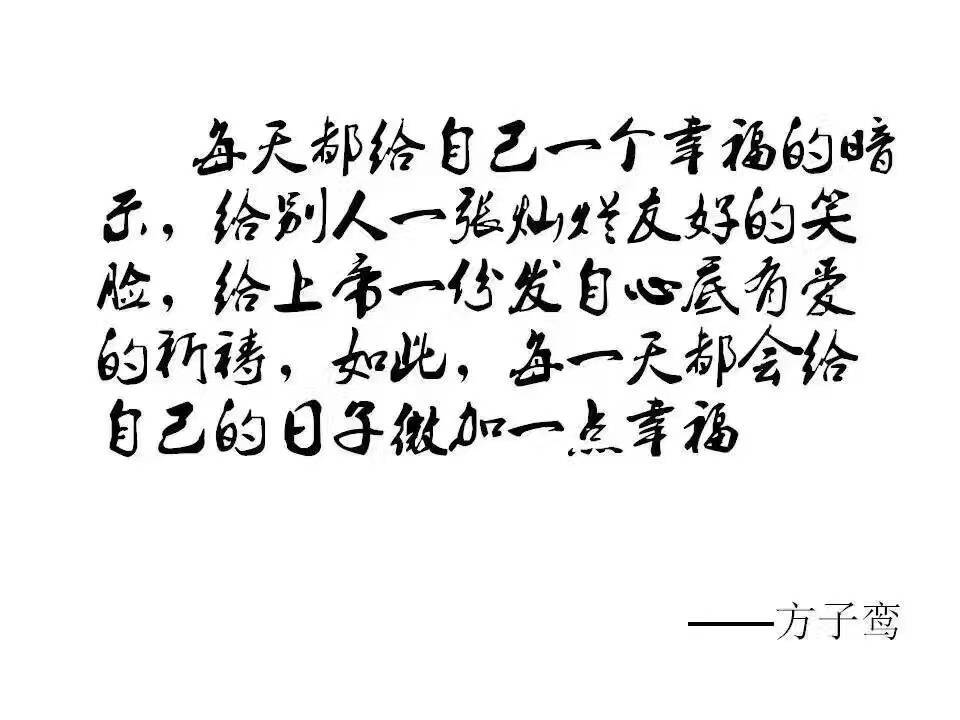 每天都给自己一个幸福的暗
示，给别人一张灿烂友好的笑
脸，给上帝一份发自心底有爱
的祈祷，如此，每一天都会给
自己的日子微加一点幸福
——方子鸾